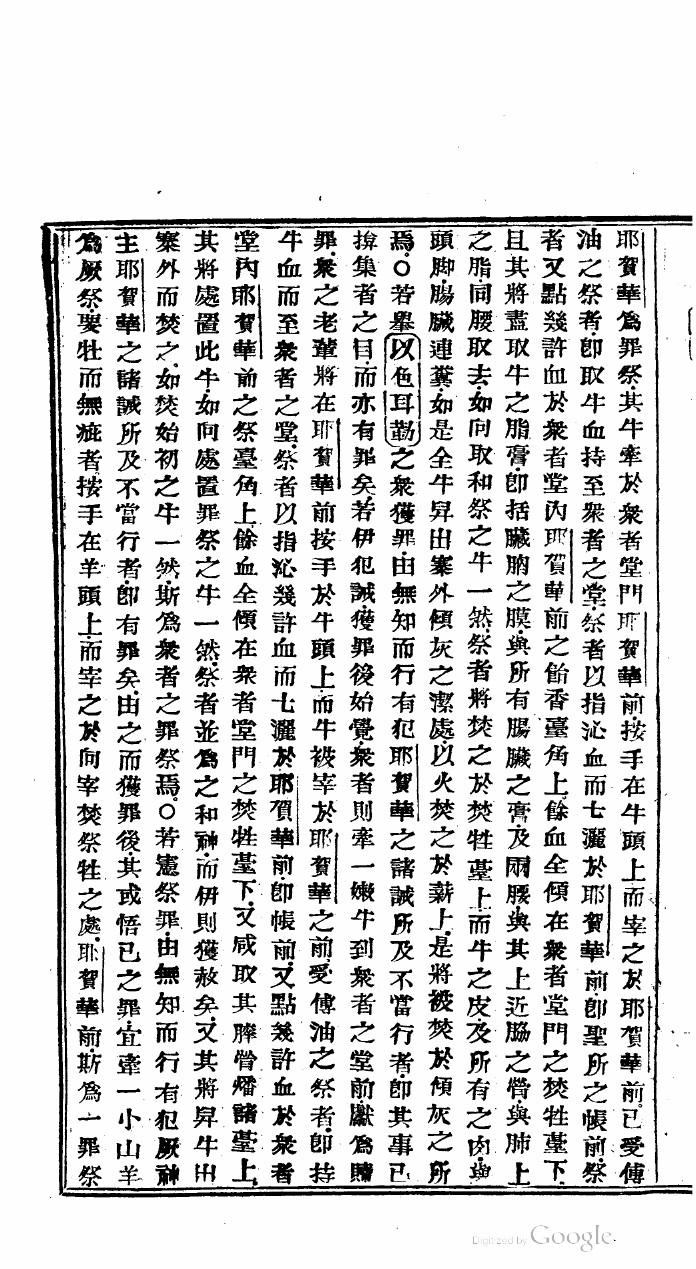 耶賀華爲罪祭.其牛牽於衆者堂門耶賀華前.按手在牛頭上而宰之於耶賀華前.已受傅
油之祭者.卽取牛血持至衆者之堂.祭者以指沁血而七灑於耶賀華前.卽聖所之帳前.祭
者又點幾許血於衆者堂內耶賀華前之飴香臺角上.餘血全傾在衆者堂門之焚牲臺下.
且其將盡取牛之脂膏.卽括臟朒之膜.與所有腸臟之膏.及兩腰與其上近脇之膋.與肺上
之脂.同腰取去.如向取和祭之牛一然.祭者將焚之於焚牲臺上.而牛之皮.及所有之肉.與
頭脚腸臟連糞.如是全牛舁出寨外傾灰之潔處.以火焚之於薪上.是將被焚於傾灰之所
焉.○若舉以色耳勘之衆獲罪.由無知而行有犯耶賀華之諸誡所及不當行者.卽其事已
揜集者之目.而亦有罪矣.若伊犯誡獲罪後始覺.衆者則牽一嫩牛到衆者之堂前.獻爲贖
罪.衆之老輩將在耶賀華前按手於牛頭上.而牛被宰於耶賀華之前.受傅油之祭者.卽持
牛血而至衆者之堂.祭者以指沁幾許血而七灑於耶賀華前.卽帳前.又點幾許血於衆者
堂內耶賀華前之祭臺角上.餘血全傾在衆者堂門之焚牲臺下.又咸取其膵膋燔諸臺上.
其將處置此牛.如向處置罪祭之牛一然.祭者並爲之和神.而伊則獲赦矣.又其將舁牛出
寨外而焚之.如焚始初之牛一然.斯爲衆者之罪祭焉.○若憲祭罪.由無知而行有犯厥神
主耶賀華之諸誡所及不當行者.卽有罪矣.由之而獲罪後.其或悟已之罪.宜牽一小山羊
爲厥祭.要牡而無疵者.按手在羊頭上.而宰之於向宰焚祭牲之處.耶賀華前.斯爲一罪祭
Digitized by Google